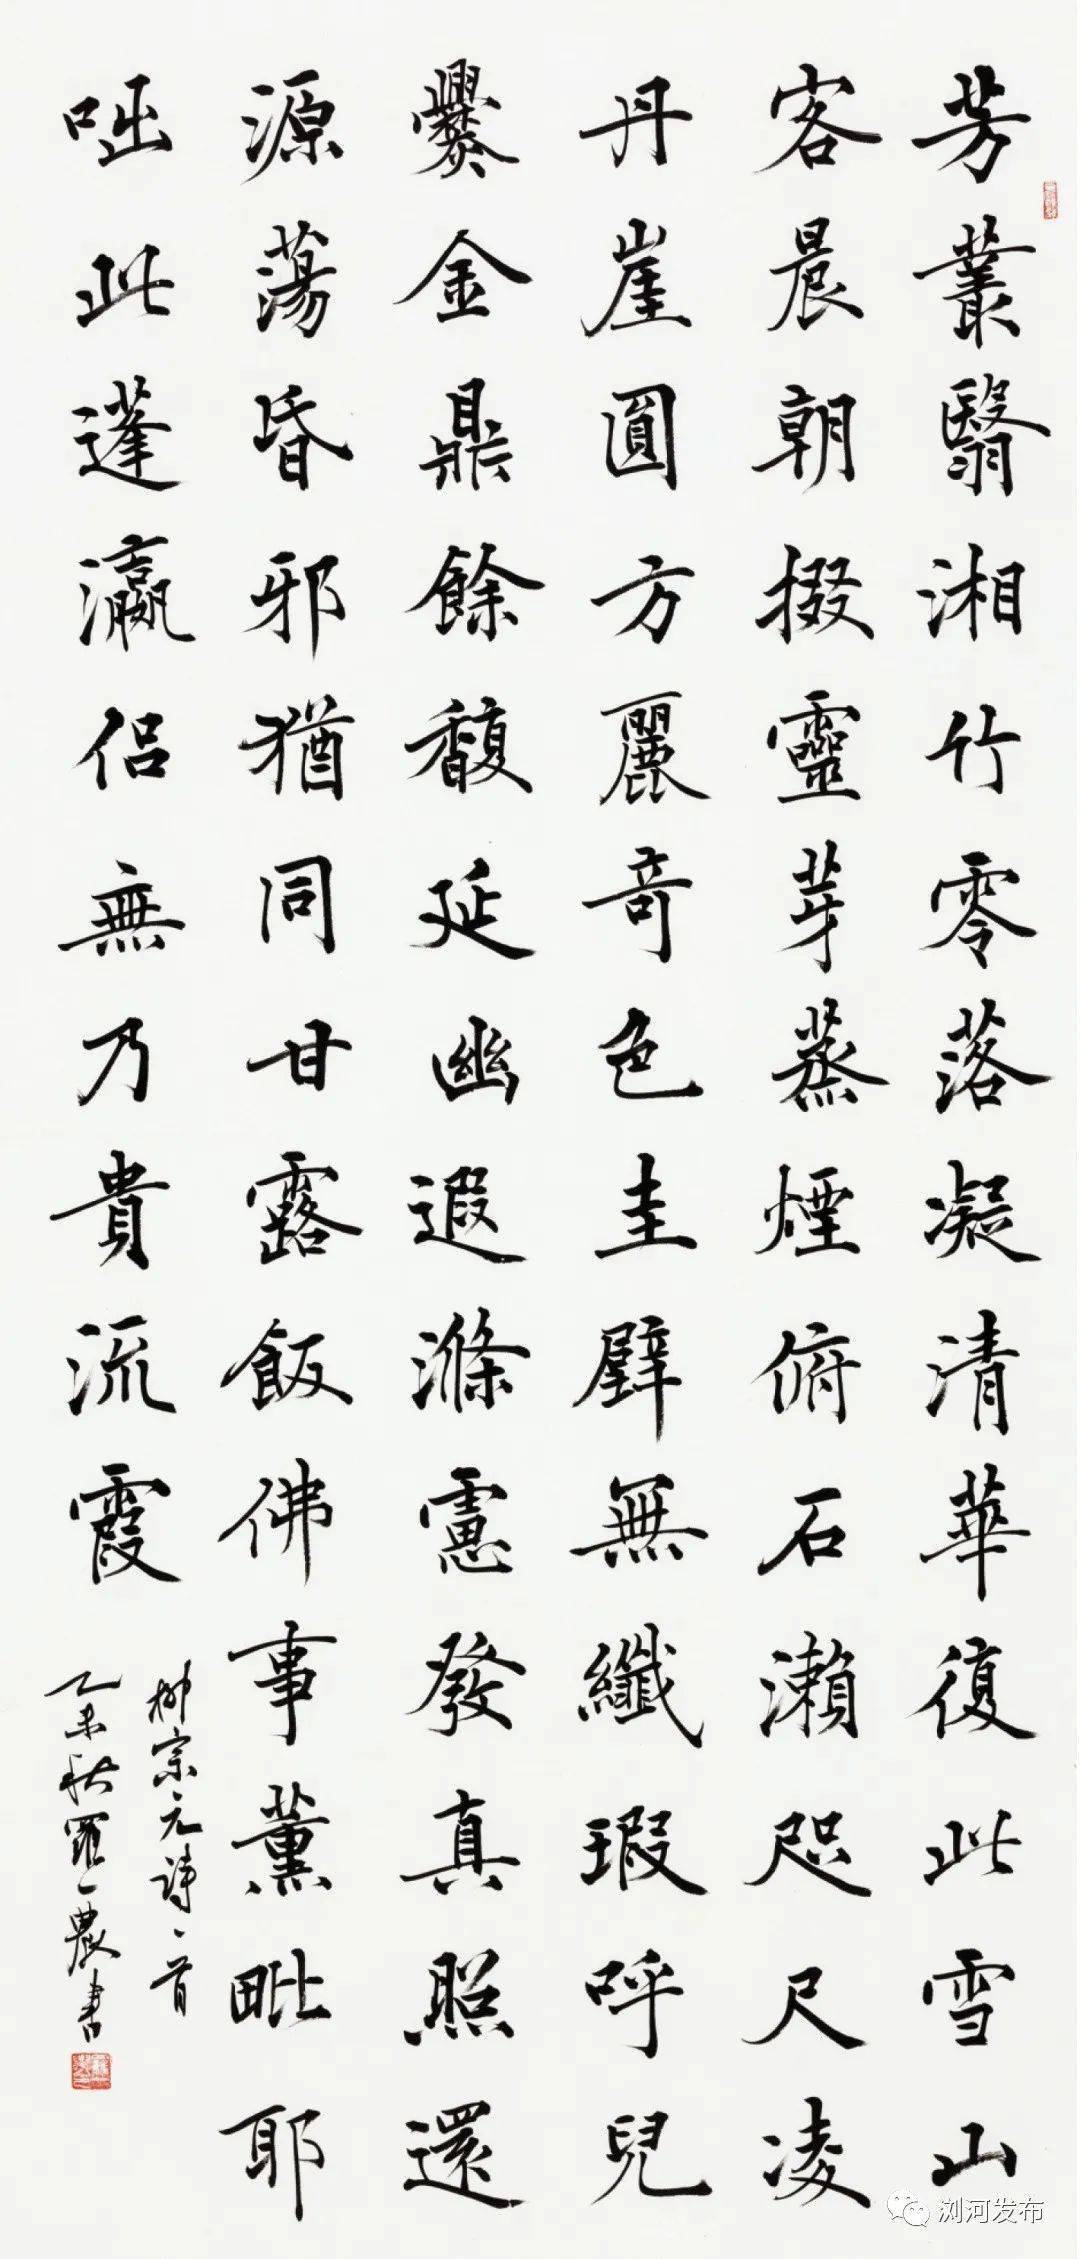 芳叢翳湘竹零落凝清華復此雪山
客晨朝掇靈芽蒸煙俯石瀨咫尺凌
丹崖圓方麗奇色圭璧無纖瑕呼兒
爨金鼎餘馥延幽遐滌慮發真照還
源蕩昏邪猶同甘露飯佛事薰毗耶
咄此蓬瀛侶無乃貴流霞
柳宗元詩一首
乙未秋羅一農書
浏河发布